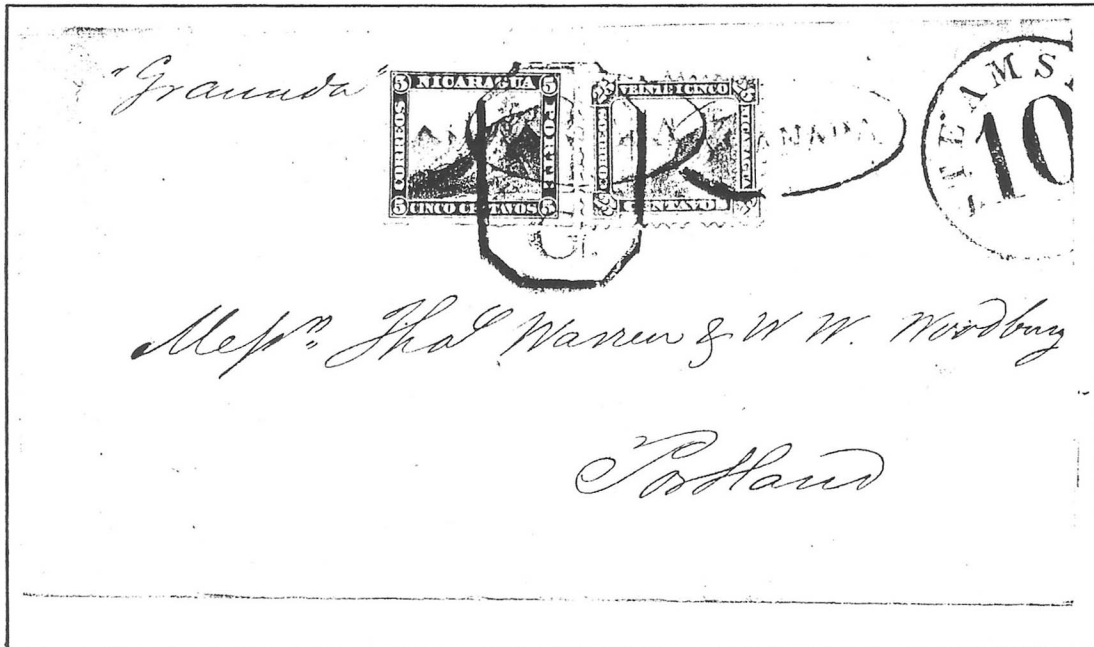 "Granada"
5 NICARAGUA 5
CORREOS
PORTE
5 CINCO CENTAVOS 5
VEINTE Y CINCO
CORREOS
NICARAGUA
CENTAVOS
ANADA
STEAMS
10
Messrs Thos Warren & W W. Woodbury
Portland